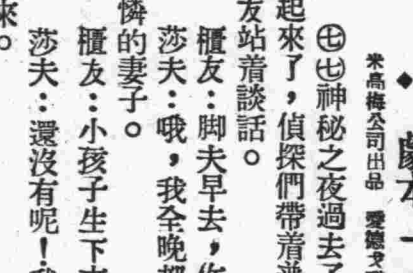 劇本
米高梅公司出品
㊆㊆神秘之夜過去了
起來了，偵探們帶着
友站着談話。
櫃友：脚夫早去，
莎夫：哦，我全晚都
憐的妻子。
櫃友：小孩子生下
莎夫：還沒有呢！我
來。